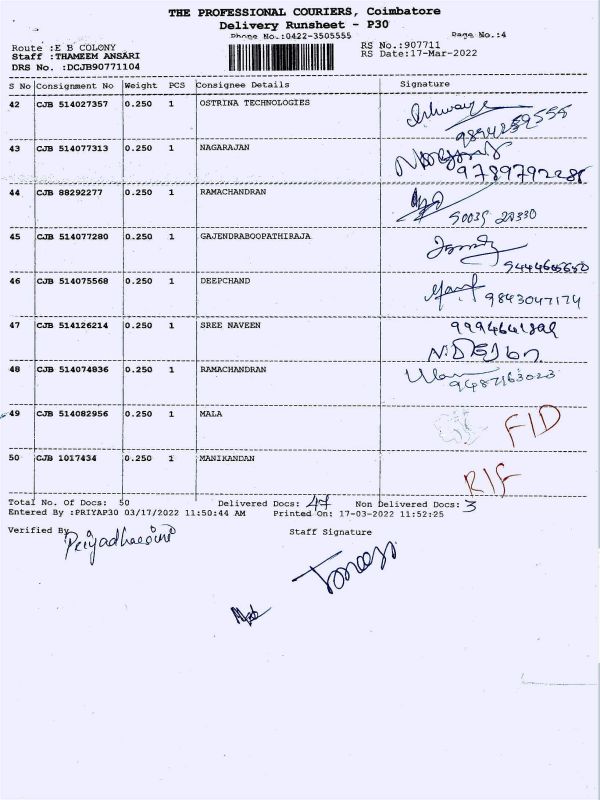 THE PROFESSIONAL COURIERS, Coimbatore
Delivery Runsheet - P30
Phone No.:0422-3505555 Page No.:4
Route :E B COLONY RS No.:907711
Staff :THAMEEM ANSARI RS Date:17-Mar-2022
DRS No. :DCJB90771104
S No Consignment No Weight PCS Consignee Details Signature
42 CJB 514027357 0.250 1 OSTRINA TECHNOLOGIES
43 CJB 514077313 0.250 1 NAGARAJAN
44 CJB 88292277 0.250 1 RAMACHANDRAN
45 CJB 514077280 0.250 1 GAJENDRABOOPATHIRAJA
46 CJB 514075568 0.250 1 DEEPCHAND
9843047174
47 CJB 514126214 0.250 1 SREE NAVEEN
48 CJB 514074836 0.250 1 RAMACHANDRAN
9487163023
49 CJB 514082956 0.250 1 MALA
50 CJB 1017434 0.250 1 MANIKANDAN
Total No. Of Docs: 50 Delivered Docs: 47 Non Delivered Docs: 3
Entered By :PRIYAP30 03/17/2022 11:50:44 AM Printed On: 17-03-2022 11:52:25
Verified By Staff Signature